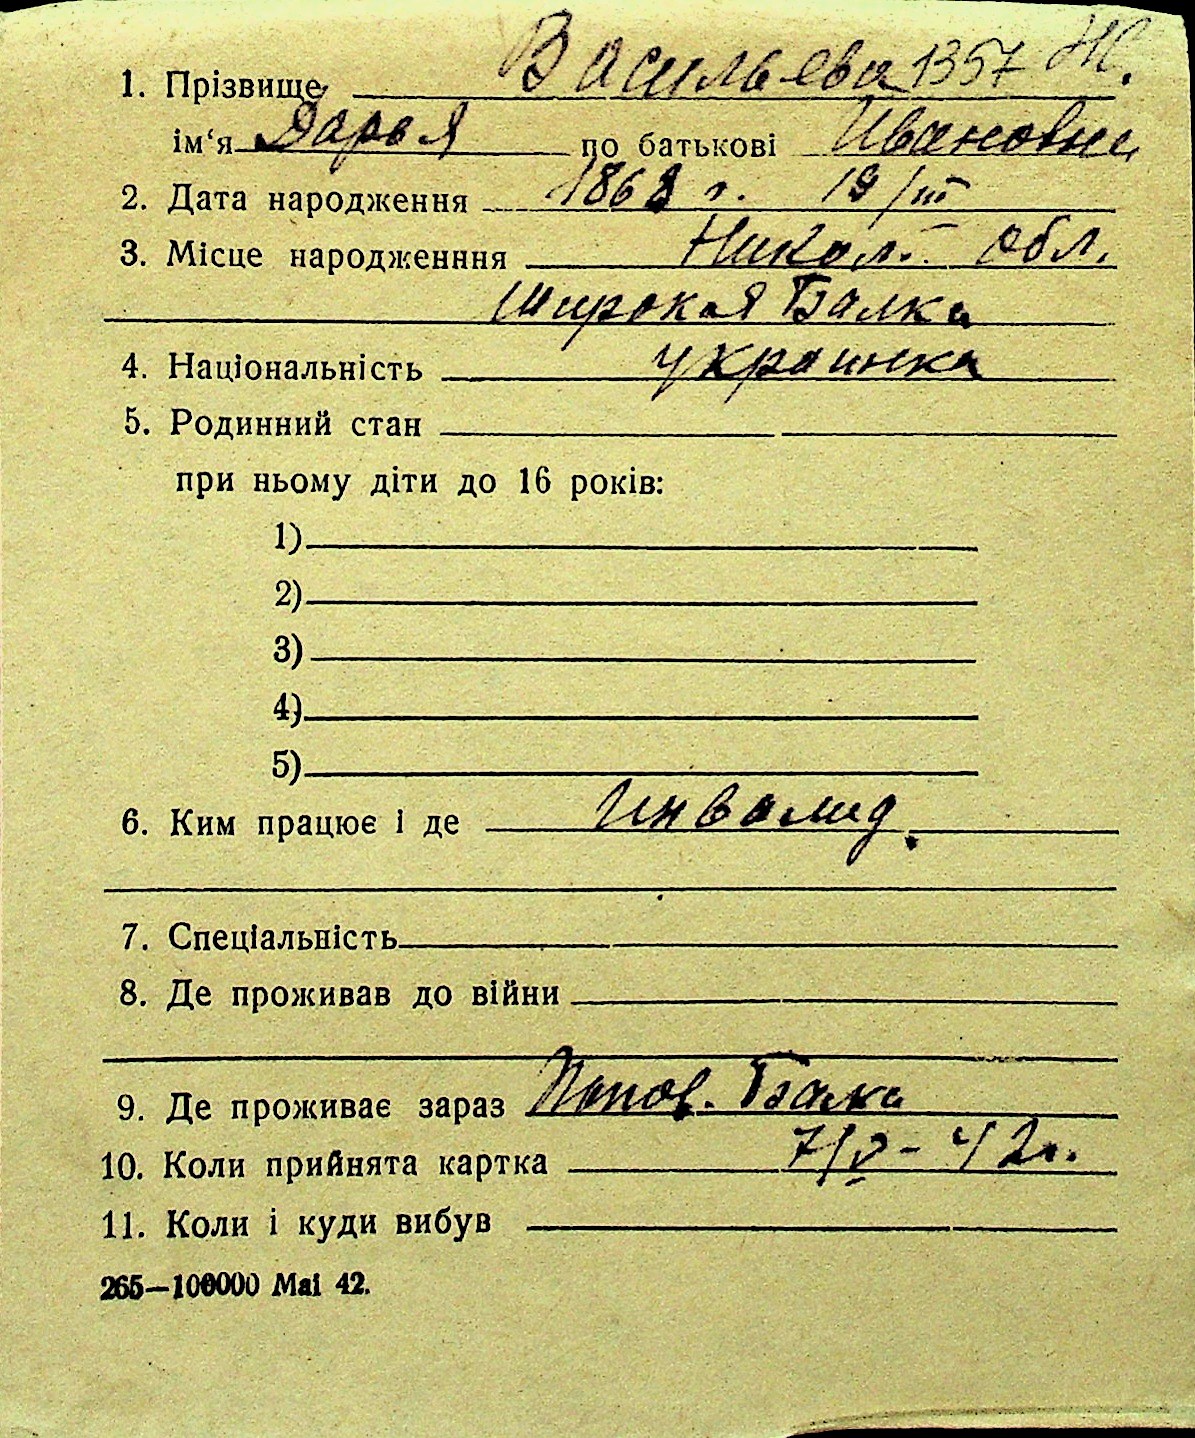 1. Прізвище Васильева 1357 Ж.
ім‘я Дарья по батькові Ивановна
2. Дата народження 1868 г. 19/III
3. Місце народженння Никол. обл.
Широкая Балка
4. Національність украинка
5. Родинний стан
при ньому діти до 16 років:
1)
2)
3)
4)
5)
6. Ким працює і де Инвалид.
7. Спеціальність
8. Де проживав до війни
9. Де проживає зараз Попов. Балка
10. Коли прийнята картка 7/V - 42 г.
11. Коли і куди вибув
265—100000 Mai 42.